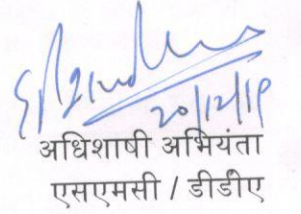 20/12/19
अधिशाषी अभियंता
एसएमसी / डीडीए